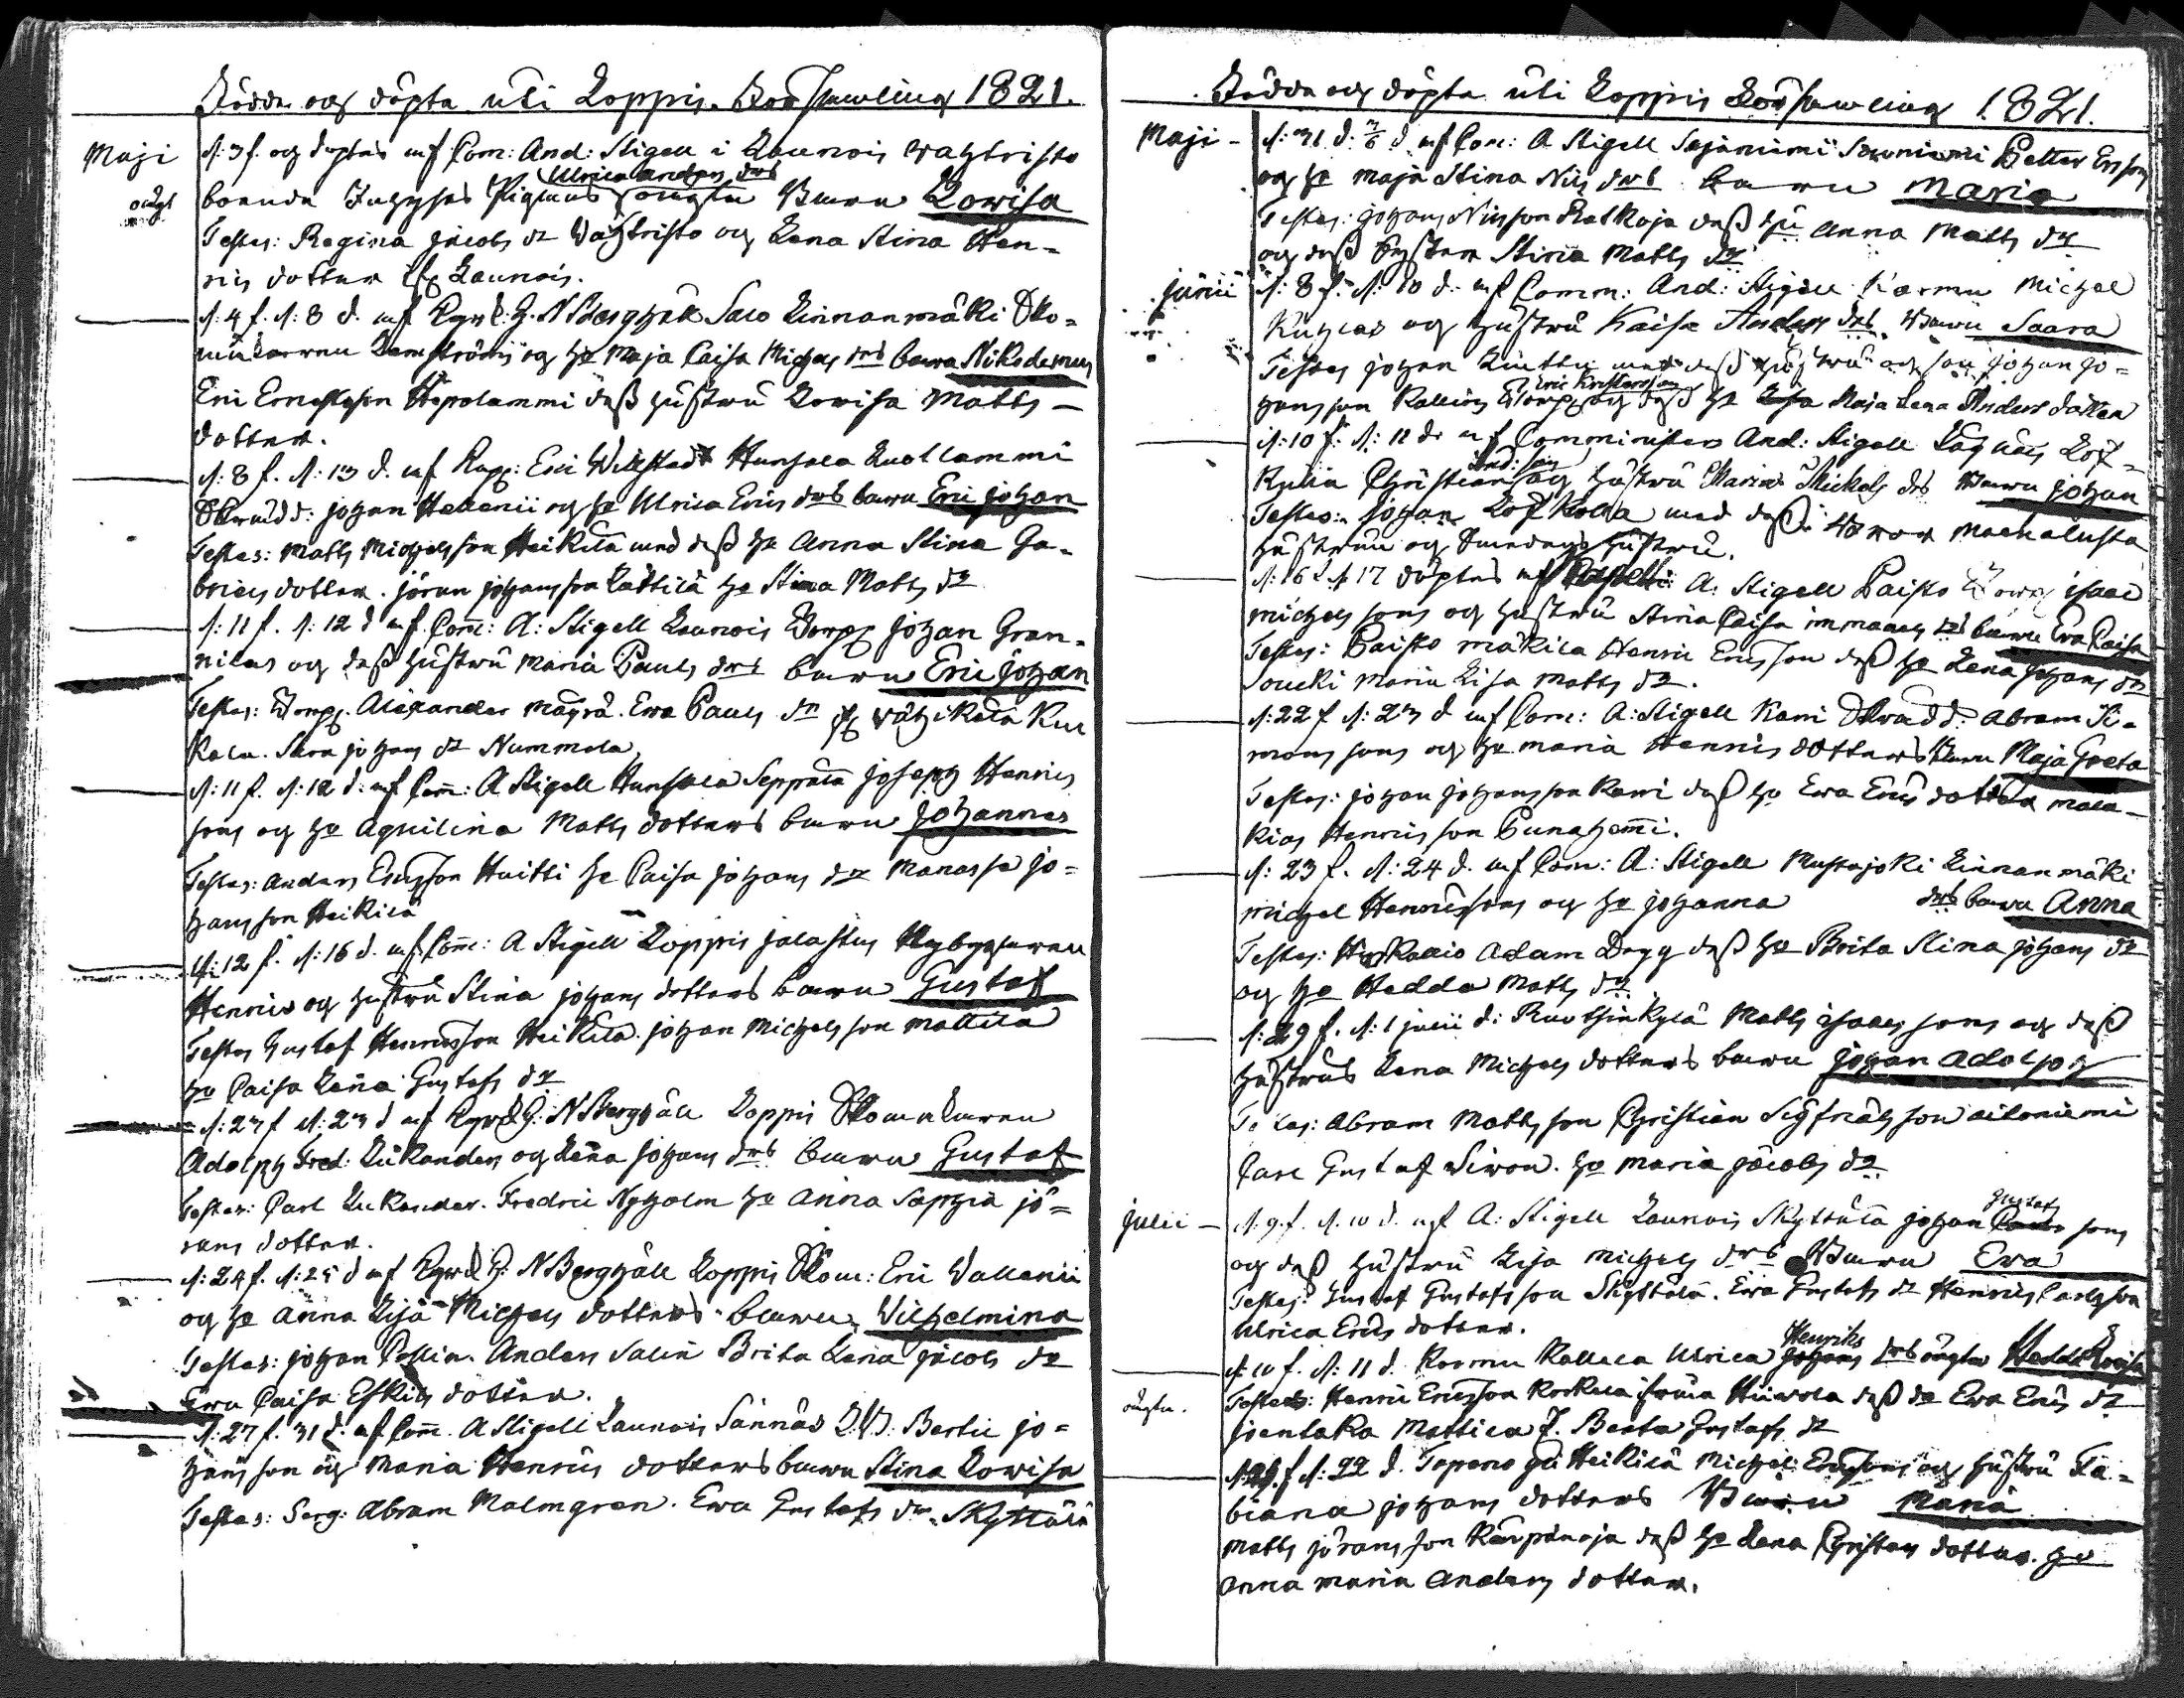 Födda och döpta uti Loppis Församling 1821.
Maji d: 3 f. och döptes af Com: And: Stigell i Launois Wahtristo
oägt boende Inhyses Pigans Ulrica Anders drs oägta Barn Lowisa
Testes: Regina Jacobs dr Wahtristo och Lena Stina Hen=
ris dotter fr Launois.
d: 4 f. d: 8 d. af G. N Bergháll Salo Linnanmäki Sko=
makaren Lemströms och h. Maja Caisa Michels drs barn Nikodemus
Eric Ericsson Hepolammi dess hustru Lowisa Matts
dotter.
d: 8 f. d: 13 d. af Eric Hunsala Luollammi
Skrädd: Johan Hellenii och h. Ulrica Erics drs barn Eric Johan
Testes: Matts Michelsson Heikilä med dess h. Anna Stina Ga=
briels dotter. Jöran Johansson Lättilä h. Stina Matts dr
d: 11 f. d: 12 d. af Com: A: Stigell Launois Torp Johan Gran=
nilas och dess hustru Maria Pauls drs barn Eric Johan
Testes: Torp. Alexander Mäyrä. Ewa Pauls dr
Sara Johans dr Nummela
d: 11 f. d: 12 d: af Com: A Stigell Hunsala Seppälä Joseph Henrics
sons och h. Aquilina Matts dotters barn Johannes
Testes: Anders Ericsson Huitti h. Caisa Johans dr Manasse Jo=
hansson Heikilä
d: 12 f. d: 16 d. af Com: A Stigell Loppis Jalastus Nybyggaren
Henrics och hustru Stina Johans dotters barn Gustaf
Testes Gustaf Henricsson Heikilä. Johan Michelsson Mattila
h. Caisa Lena Gustafs dr
d: 23 f. d: 23 d af G: N Bergháll Loppis Skomakaren
Adolph Fred: Lukanders och Lena Johans drs barn Gustaf
Testes: Carl Lukander. Fredric Nyholm h. Anna Sophia Jö=
rans dotter.
d: 24 f. d: 25 d af G: N Bergháll Loppis Skom: Eric Wallenii
och h. Anna Lisa Michels dotters barn Wilhelmina
Testes: Johan Collin. Anders Salin Brita Lena Jacobs dr
Ewa Caisa Eskils dotter.
d: 27 f. 31 d. af Com. A Stigell Launois Sännäs Bertil Jo=
hansson och Maria Henrics dotters barn Stina Lowisa
Testes: Serg: Abram Malmgren. Ewa Gustafs dr. Skyttälä
Födda och döpta uti Loppis Församling 1821.
Maji d: 31 d: 3/6 d. af Com: A Stigell Sajaniemi Sawniemi Petter Ersson
och h. Maja Stina Nils drs barn Maria
Testes: Johans Nilsson Ratkoja dess hu Anna Matts dr
och dess Syster Stina Matts dr
Junii d: 8 f. d: 10 d. af Comm: And: Stigell Kormu Michel
och hustru Kaisa Anders drs Barn Saara
Testes Johan med dess hustru och son Johan Jo=
hansson Kallios Torp Eric Kristersson och dess h. Maja Lena Anders dotter
d: 10 f. d: 11 d. af Comminister And: Stigell
Christian And: son och hustru Maria Mickels drs Barn Johan
Testes: Johan med dess
hustru och hustru.
d: 16 d 17 döptes af A: Stigell Paisto Torp Isaac
Michels sons och hustru Stina Caisa Immanuels drs barn Ewa Caisa
Testes: Paisto Mäkilä Henric Ericsson dess h. Lena Johans dr
Maria Lisa Matts dr.
d: 22 f d: 23 d. af Com: A: Stigell Kani Skrädd: Abram Si=
mons sons och h. Maria Henrics dotters Barn Maja Greta
Testes: Johan Johansson Kani dess h. Ewa Erics dotter Mala=
kias Henricsson Punahemi.
d: 23 f. d: 24 d. af Com: A: Stigell Mustajoki Linnanmäki
Michel Henricssons och h. Johanna drs barn Anna
Testes: Kallio Adam dess h. Brita Stina Johans dr
och h. Hedda Matts dr
d: 29 f. d: 1 Julii d: Ruotsinkylä Matts Isaacssons och dess
hustrus Lena Michels dotters barn Johan Adolph
Testes: Abram Mattsson Christian Sigfridsson Aitoniemi
Carl Gustaf Siron. h. Maria Jacobs dr
Julii d. 9 f. d. 10 d. af A: Stigell Launois Skyttälä Johan Gustafs sons
och dess hustru Lisa Michels drs Barn Ewa
Testes: Gustaf Gustafsson Skyttälä. Ewa Gustafs dr Henric Carlsson
Ulrica Erics dotter.
d. 10 f. d: 11 d. Kormu Kallela Ulrica Henriks drs oägta Hedda Lovisa
oägta. Testes: Henric Ericsson dess h. Ewa Erics dr
Mattila P. Beata Gustafs dr
d: 22 d. Topeno Heikilä Michel Ericssons och hustru Fa=
biana Johans dotters Barn Maria
Matts Jöransson Karpänoja dess h. Lena Christers dotter. h.
Anna Maria Anders dotter.